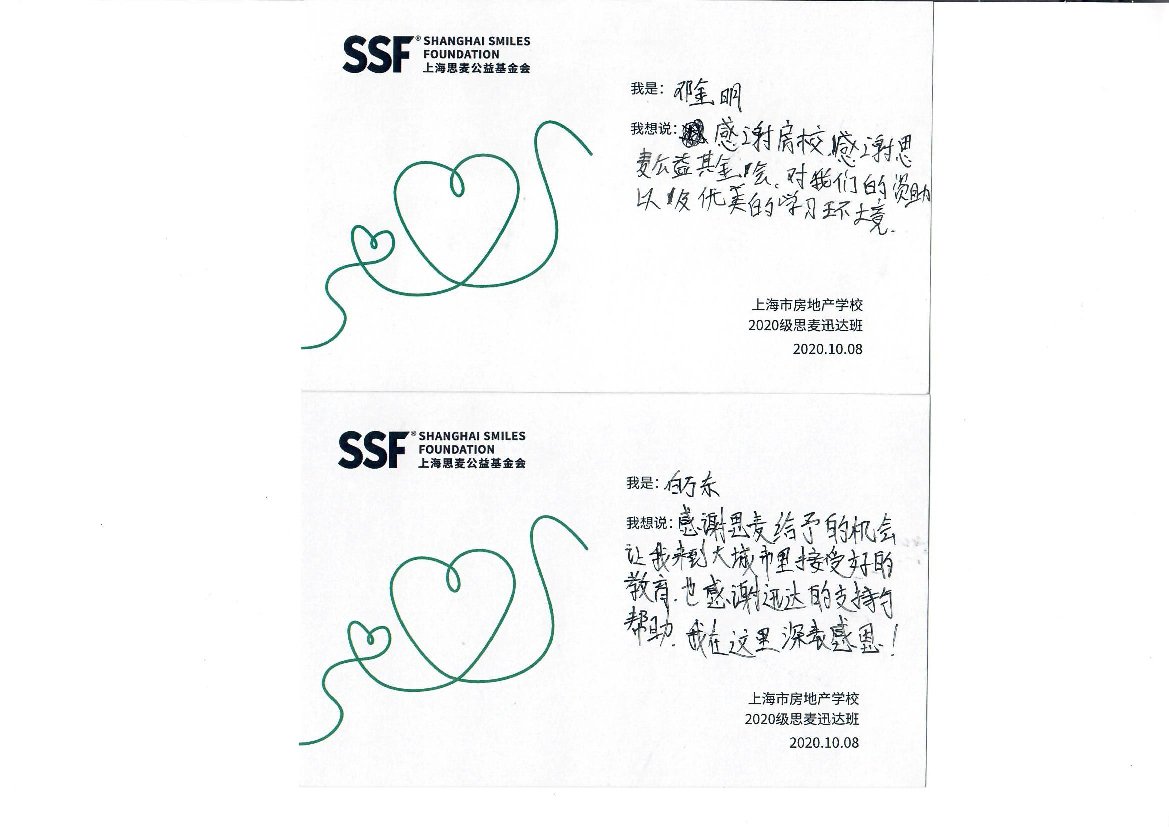 SSF® SHANGHAI SMILES
FOUNDATION
上海思麦公益基金会
我是：邓金明
我想说：感谢房校,感谢思
麦公益基金会,对我们的资助
以及优美的学习环境.
上海市房地产学校
2020级思麦迅达班
2020.10.08
SSF® SHANGHAI SMILES
FOUNDATION
上海思麦公益基金会
我是：白万东
我想说：感谢思麦给予的机会
让我来到大城市里接受好的
教育.也感谢迅达的支持与
帮助.我在这里深表感恩！
上海市房地产学校
2020级思麦迅达班
2020.10.08